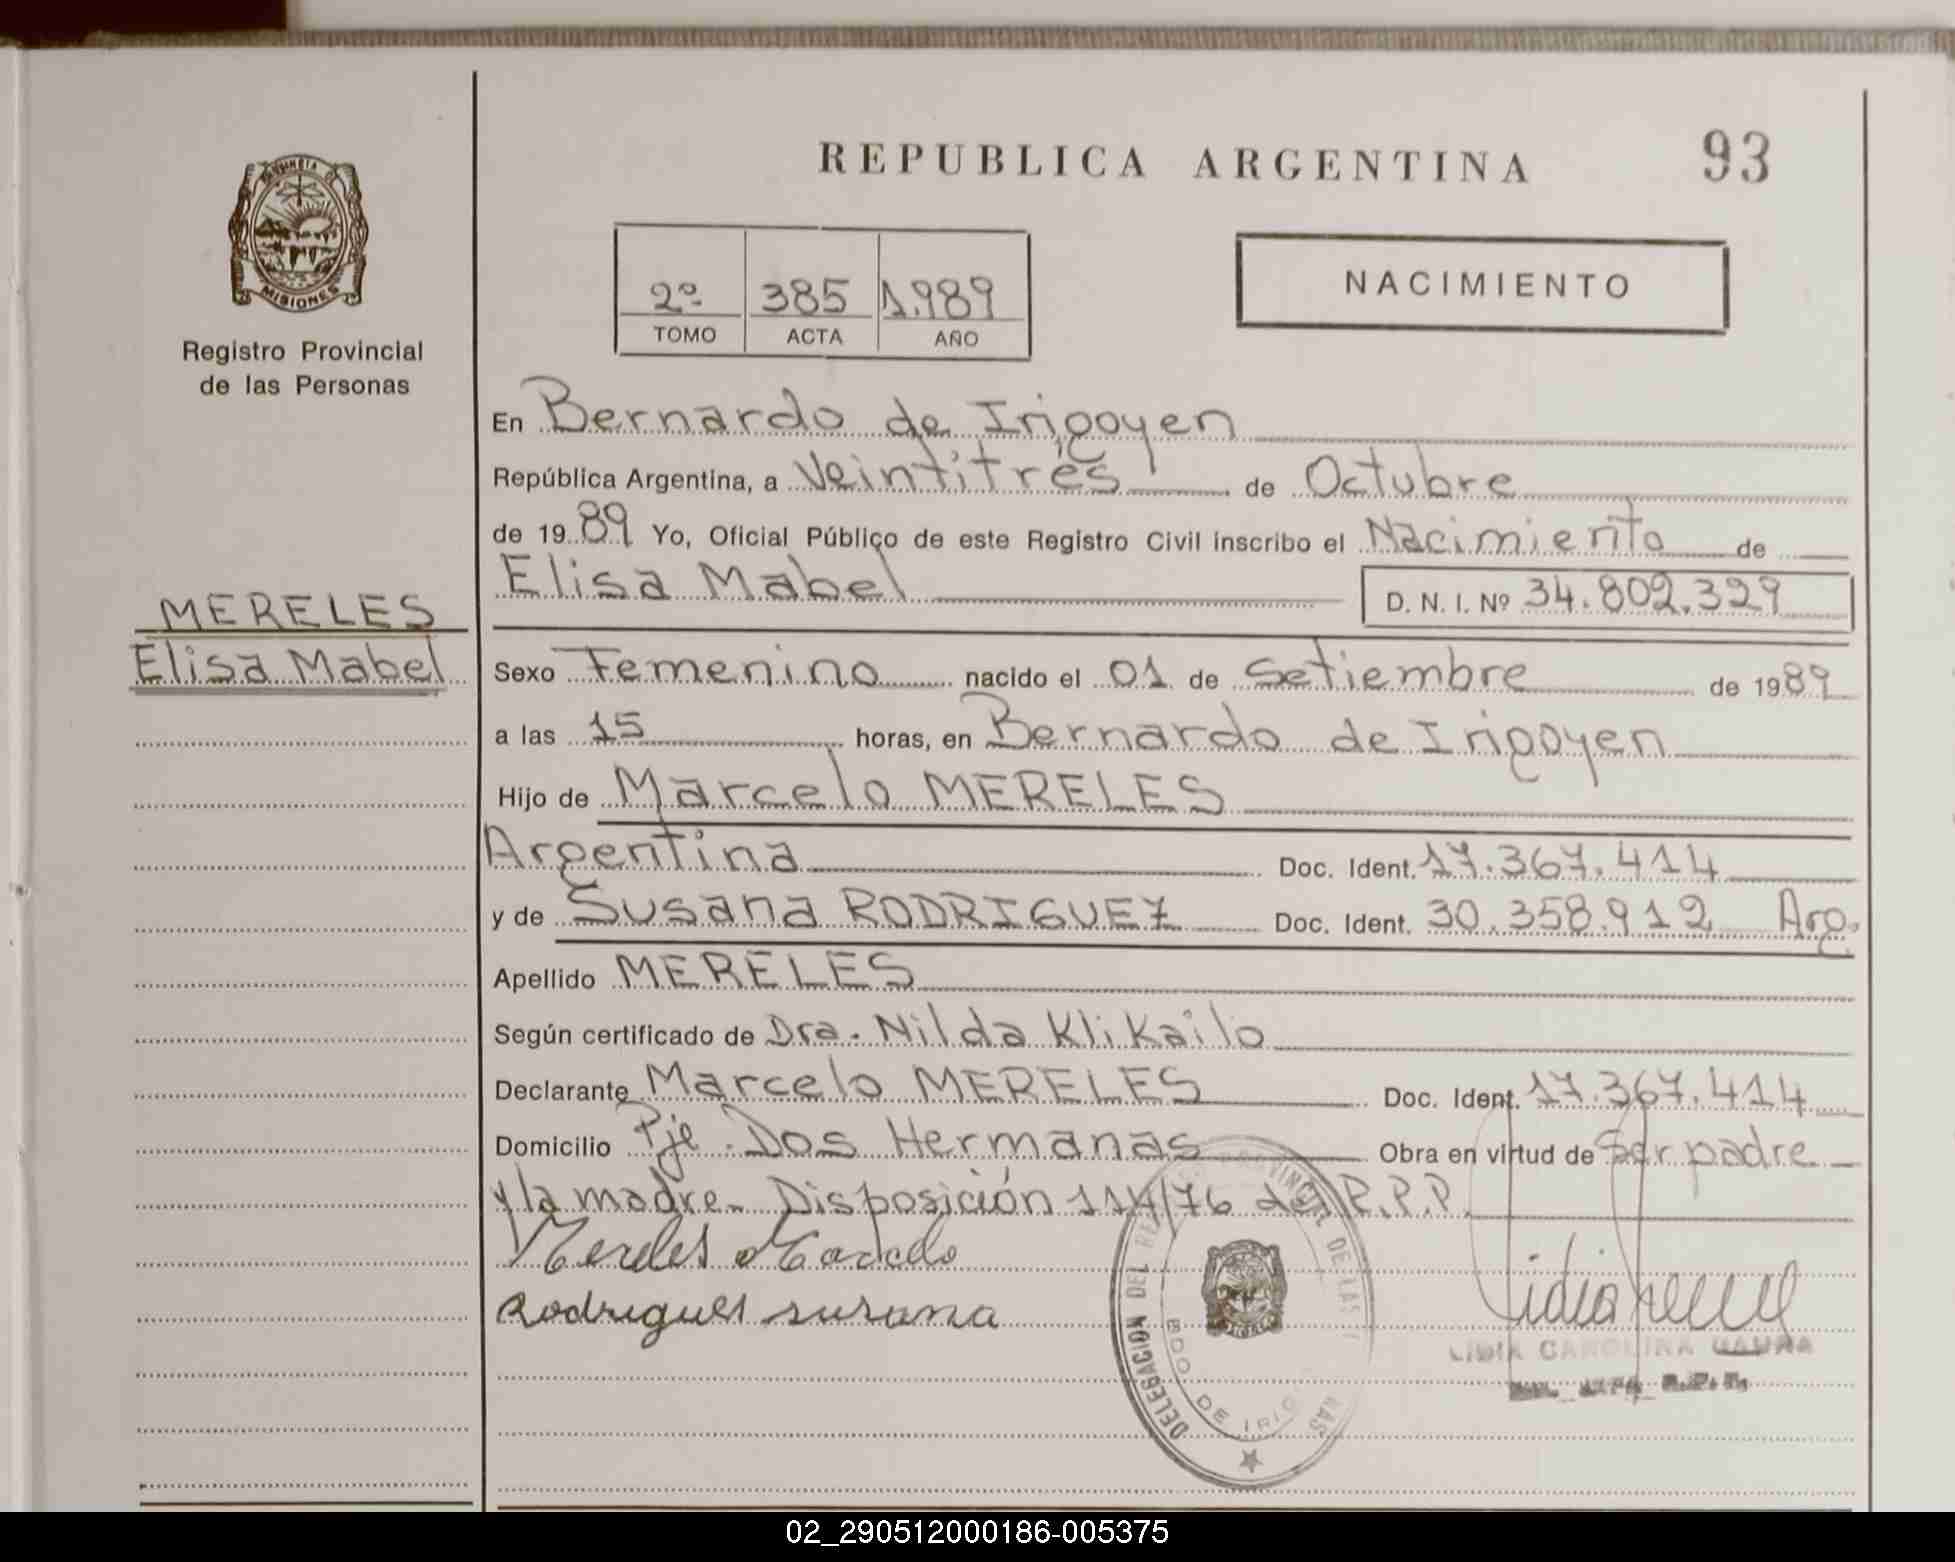 REPUBLICA ARGENTINA
93
PROVINCIA DE
MISIONES
Registro Provincial
de las Personas
2º 385 1.989
TOMO ACTA AÑO
NACIMIENTO
En Bernardo de Irigoyen
República Argentina, a Veintitrés de Octubre
de 1989 Yo, Oficial Público de este Registro Civil inscribo el Nacimiento de
Elisa Mabel D. N. I. Nº 34.802.329
MERELES
Elisa Mabel
Sexo Femenino nacido el 01 de Setiembre de 1989
a las 15 horas, en Bernardo de Irigoyen
Hijo de Marcelo MERELES
Argentina Doc. Ident. 17.367.414
y de Susana RODRIGUEZ Doc. Ident. 30.358.912 Arg.
Apellido MERELES
Según certificado de Dra. Nilda Klikailo
Declarante Marcelo MERELES Doc. Ident. 17.367.414
Domicilio Pje. Dos Hermanas Obra en virtud de Ser padre
y la madre. Disposición 114/76 del R.P.P.
Mereles Marcelo
Rodrigues susana
DELEGACION DEL PROVINCIAL DE LAS
BDO DE IRIG
LIDIA CAROLINA
02_290512000186-005375